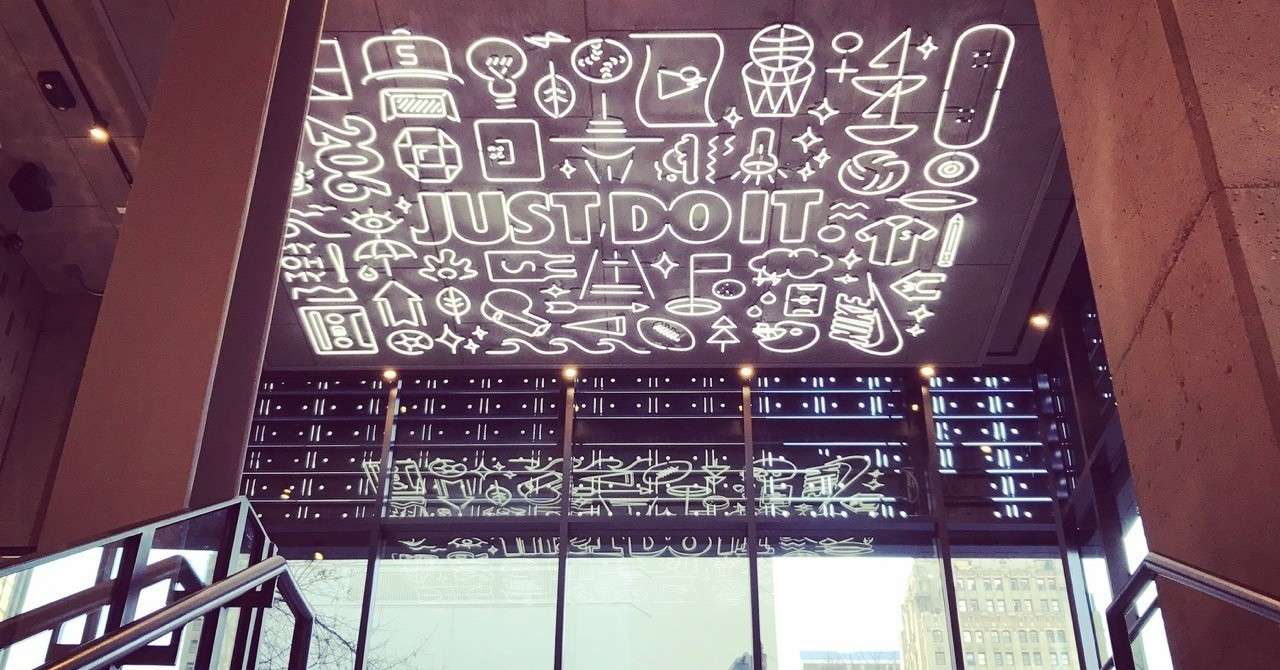 S
206
JUST DO IT
S
NIKE